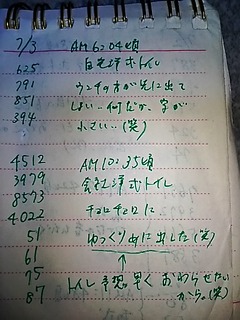 7/3 AM6:04頃
625 自宅洋式トイレ
791 ウンチの方が先に出て
851 しまい何だか、字が
394 小さい。(笑)
4512 AM10:35頃
3979 会社洋式トイレ
8573 チョロチョロに
4022
51 ゆっくりめに出した(笑)
61
75 トイレ予想早くおわらせたい
87 から。(笑)